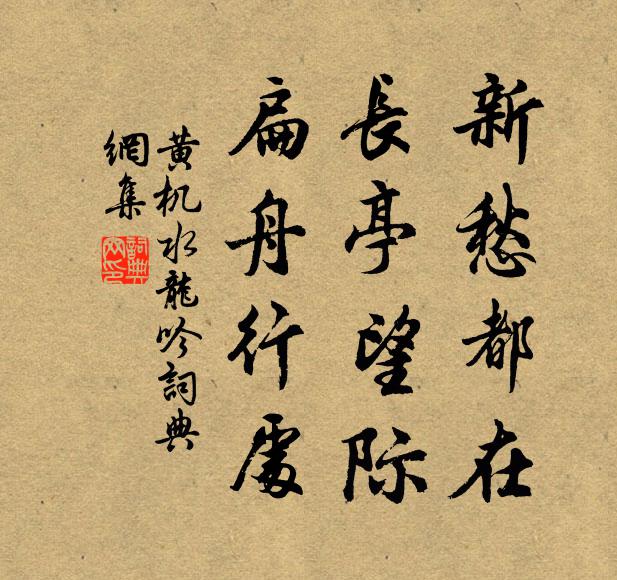 新愁都在
長亭望际
扁舟行處
黄机水龍吟詞典
網集
詞典
网印